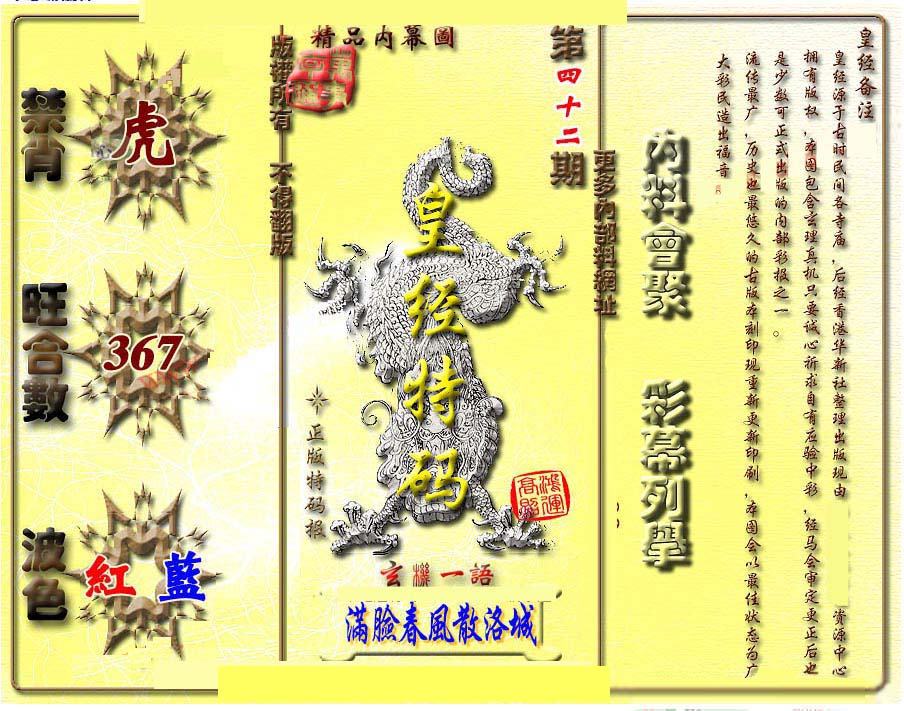 精品內幕圖
第四十二期
版權所有 不得翻版
更多內部料網址
禁肖
虎
旺合數
367
波色
紅 藍
皇经特码
正版特码报
鴻運高照
玄機一語
滿臉春風散洛城
內料會聚 彩幕列舉
皇经备注
皇经源于古时民间各寺庙,后经香港华新社整理出版现由 资源中心
拥有版权,本图包含玄理真机只要诚心祈求自有应验中彩,经马会审定更正后也
是少数可正式出版的内部彩报之一。
流传最广,历史也最悠久的古版本刻印现重新更新印刷,本图会以最佳状态为广
大彩民造出福音